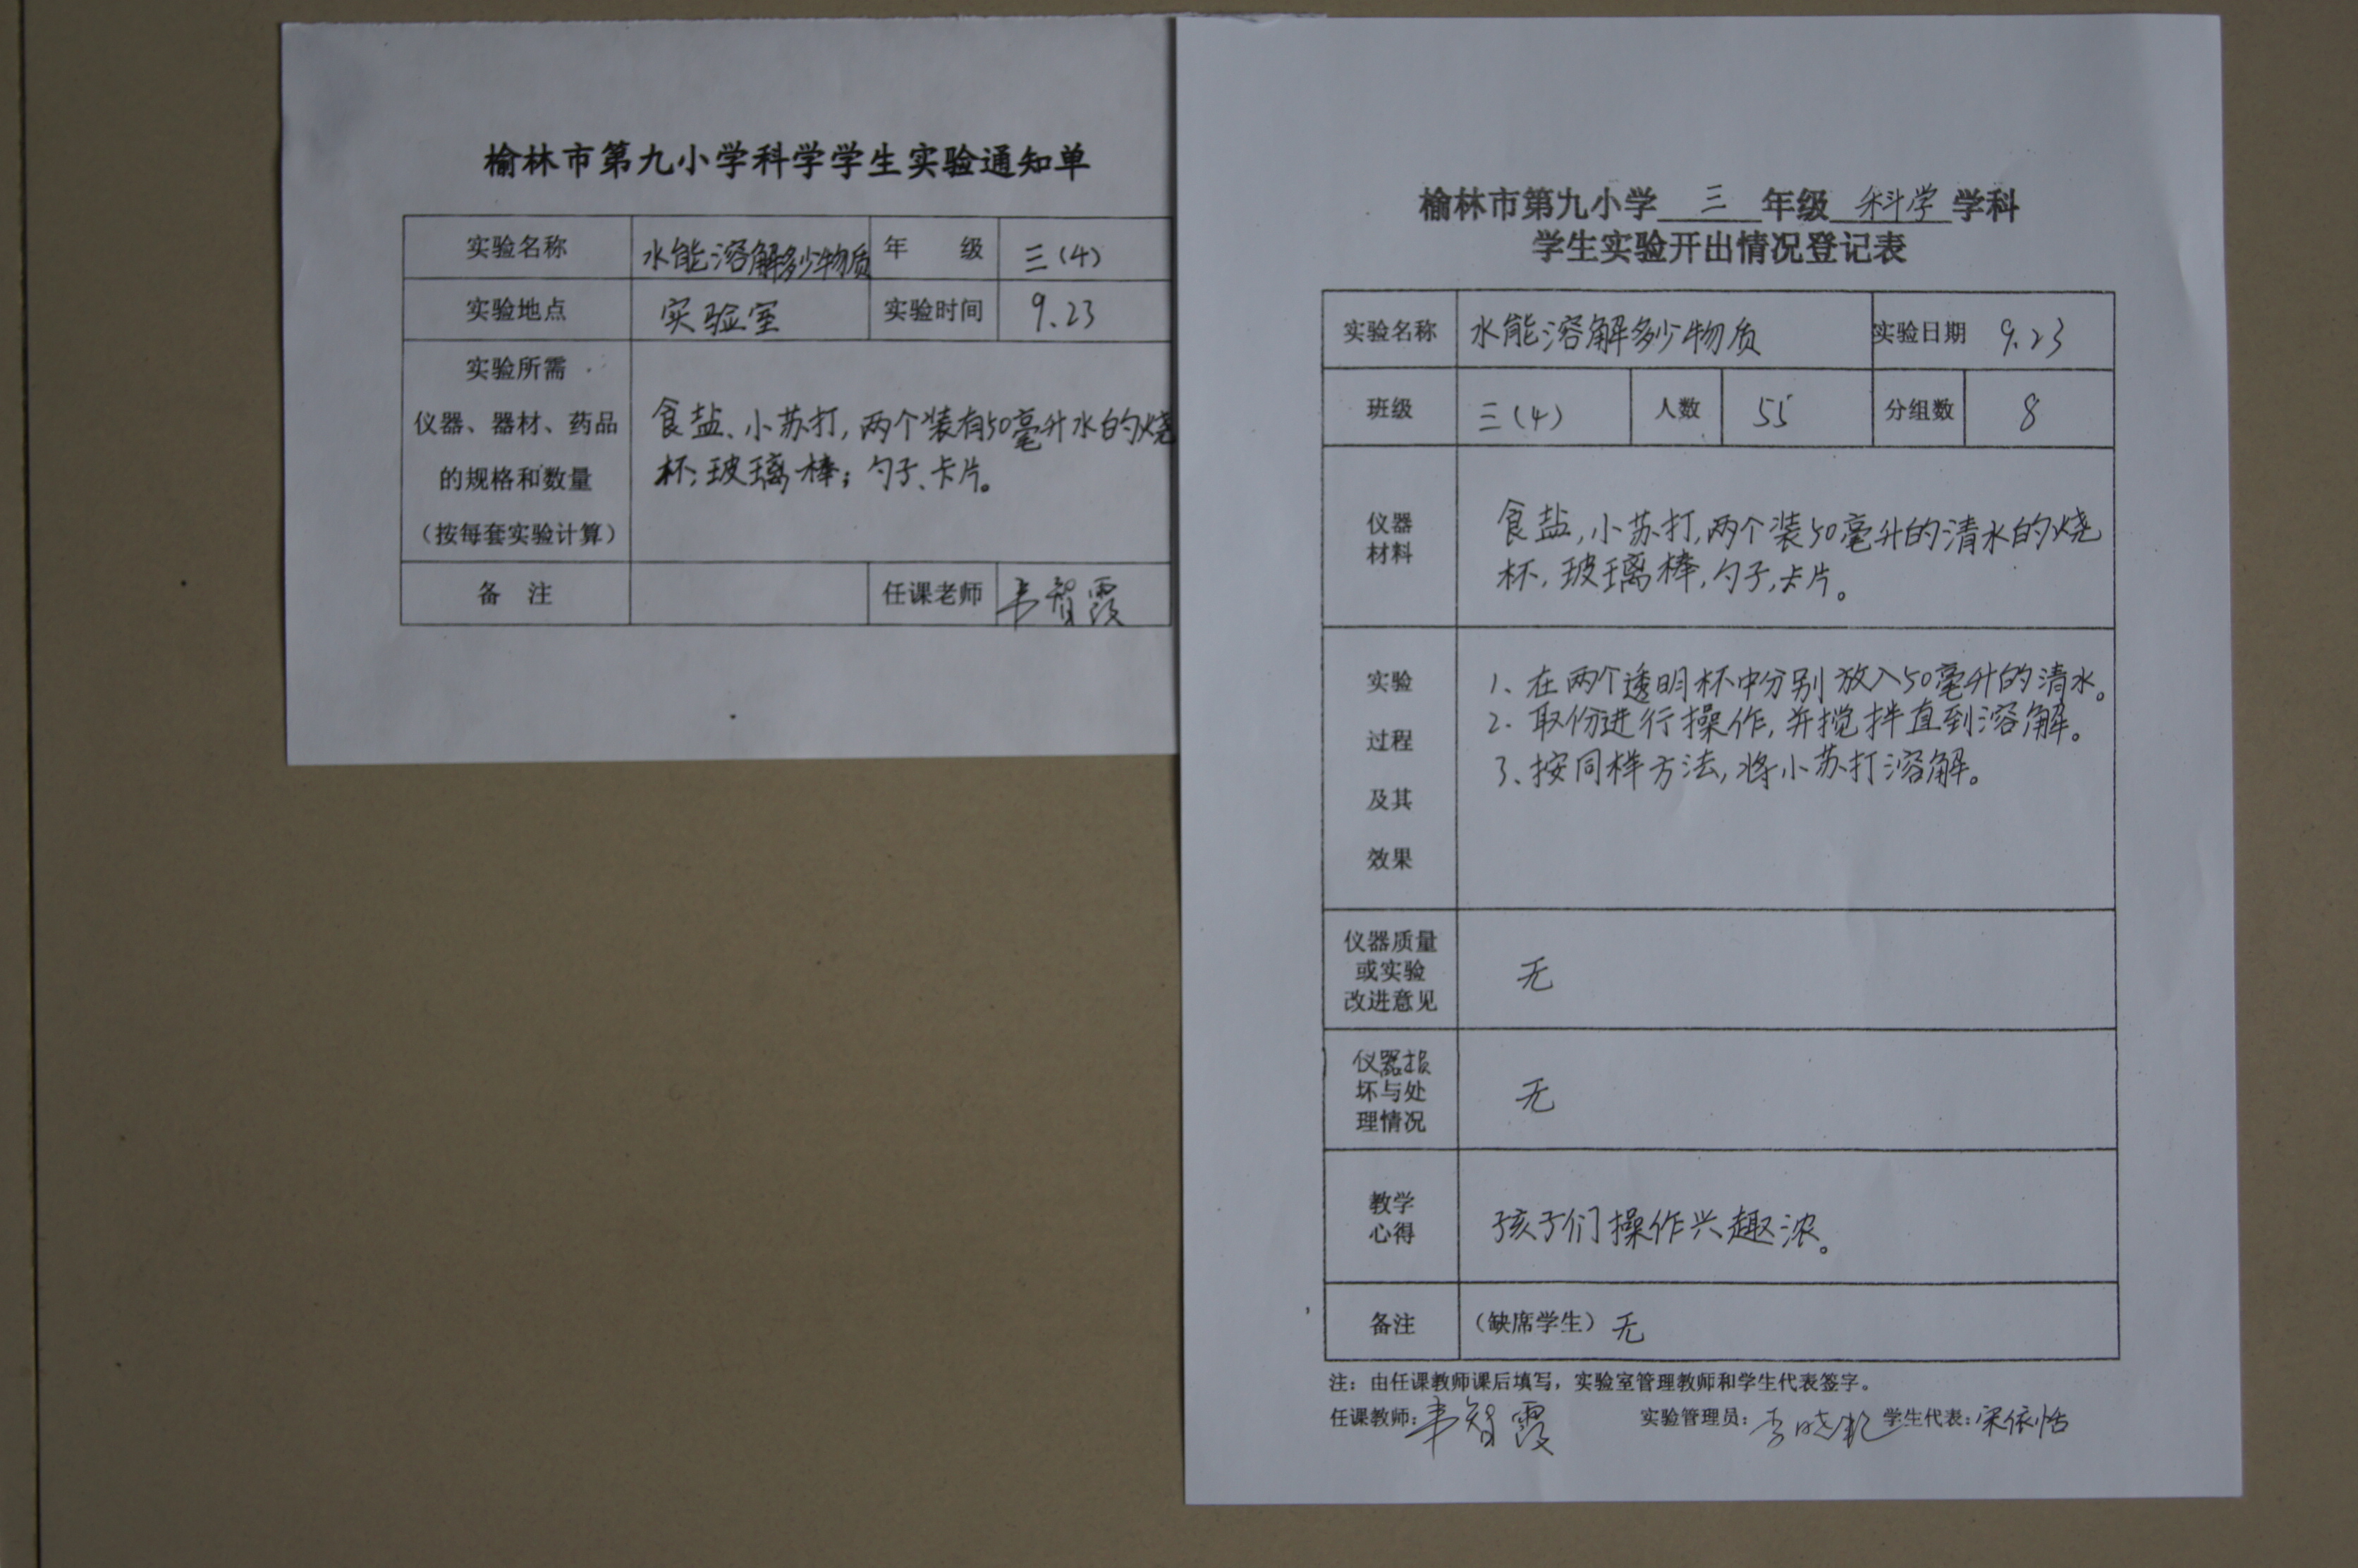 榆林市第九小学科学学生实验通知单
实验名称 水能溶解多少物质 年 级 三(4)
实验地点 实验室 实验时间 9.23
实验所需
仪器、器材、药品
的规格和数量
（按每套实验计算）
食盐、小苏打，两个装有50毫升水的烧
杯；玻璃棒；勺子、卡片。
备 注 任课老师 智霞
榆林市第九小学 三 年级 科学 学科
学生实验开出情况登记表
实验名称 水能溶解多少物质 实验日期 9.23
班级 三(4) 人数 55 分组数 8
仪器
材料
食盐，小苏打，两个装50毫升的清水的烧
杯，玻璃棒，勺子，卡片。
实验
过程
及其
效果
1、在两个透明杯中分别放入50毫升的清水。
2、取份进行操作，并搅拌直到溶解。
3、按同样方法，将小苏打溶解。
仪器质量
或实验
改进意见
无
仪器损
坏与处
理情况
无
教学
心得
孩子们操作兴趣浓。
备注 （缺席学生） 无
注：由任课教师课后填写，实验室管理教师和学生代表签字。
任课教师： 智霞 实验管理员： 李晓 学生代表：宋依恬